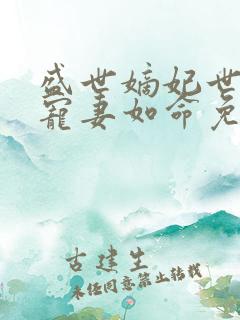 盛世嫡妃世
宠妻如命免
古建生
未经同意禁止转载